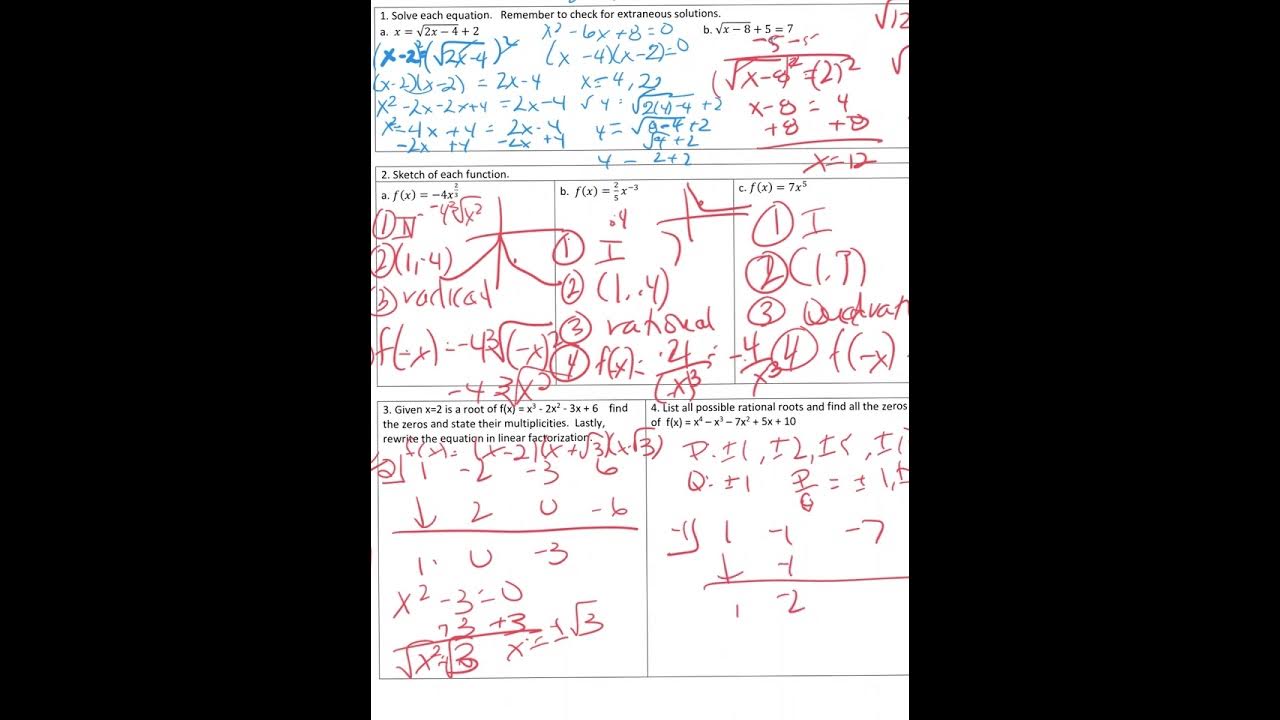 1. Solve each equation. Remember to check for extraneous solutions.
a. x = √2x − 4 + 2
b. √x − 8 + 5 = 7
√12
x² - 6x + 8 = 0
(x-2)² = (√2x-4)²
(x -4)(x-2)=0
(x-2)(x-2) = 2x-4
x = 4, 2
x² -2x-2x+4 = 2x-4
√ 4 = √2(4)-4 + 2
x² - 4x + 4 = 2x-4
-2x +4 -2x +4
4 = √8-4 +2
√4 + 2
4 = 2+2
-5 -5
(√x-8)² = (2)²
x-8 = 4
+8 +8
x = 12
2. Sketch of each function.
a. f(x) = −4x^(2/3)
-4 ³√x²
① IV
② (1,-4)
③ radical
f(-x) = -4 ³√(-x)²
-4 ³√x²
b. f(x) = 2/5 x⁻³
.4
① I
② (1, .4)
③ rational
④ f(x) = .4/(-x)³ = -.4/x³
c. f(x) = 7x⁵
① I
② (1,7)
③
④ f(-x)
3. Given x=2 is a root of f(x) = x³ - 2x² - 3x + 6 find
the zeros and state their multiplicities. Lastly,
rewrite the equation in linear factorization.
f(x) = (x-2)(x+√3)(x-√3)
2⌋ 1 -2 -3 6
↓ 2 0 -6
1 0 -3
x² -3 = 0
+3 +3
√x² = √3
x = ±√3
4. List all possible rational roots and find all the zeros
of f(x) = x⁴ − x³ − 7x² + 5x + 10
P: ±1, ±2, ±5, ±1
Q: ±1 P/Q = ±1, ±
-1⌋ 1 -1 -7
↓ -1
1 -2